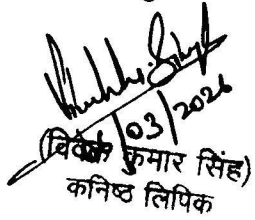 03/2026
(विवेक कुमार सिंह)
कनिष्ठ लिपिक